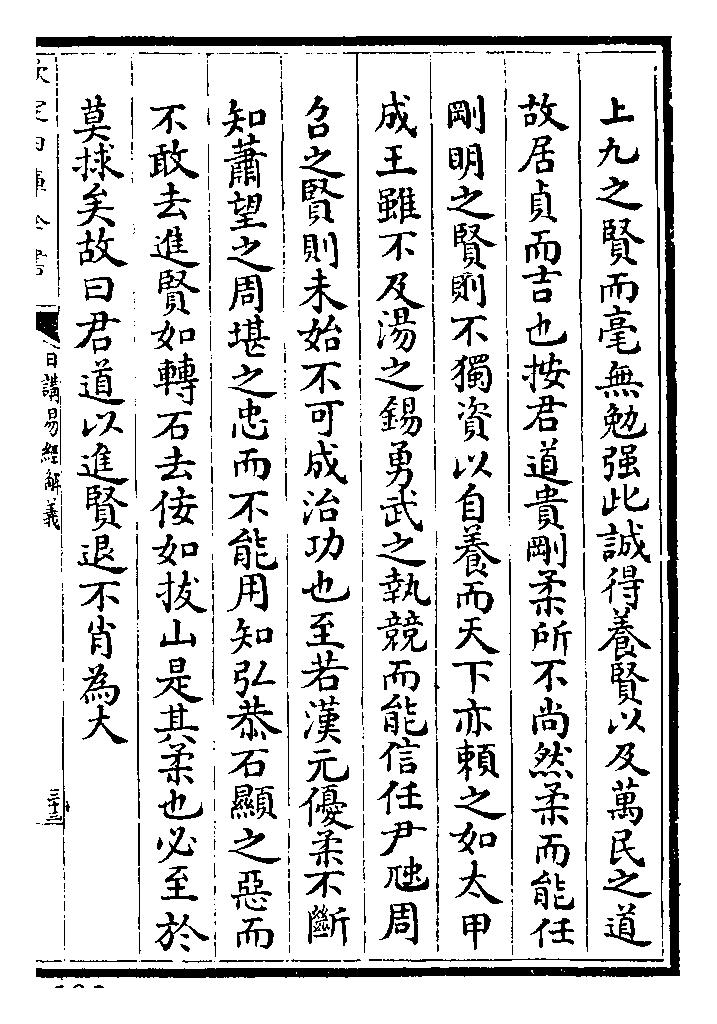 上九之賢而毫無勉强此誠得養賢以及萬民之道
故居貞而吉也按君道貴剛柔所不尚然柔而能任
剛明之賢則不獨資以自養而天下亦頼之如太甲
成王雖不及湯之錫勇武之執競而能信任尹虺周
召之賢則未始不可成治功也至若漢元優柔不斷
知蕭望之周堪之忠而不能用知弘恭石顯之惡而
不敢去進賢如轉石去佞如拔山是其柔也必至於
莫捄矣故曰君道以進賢退不肖為大
日講易經解義
三十三